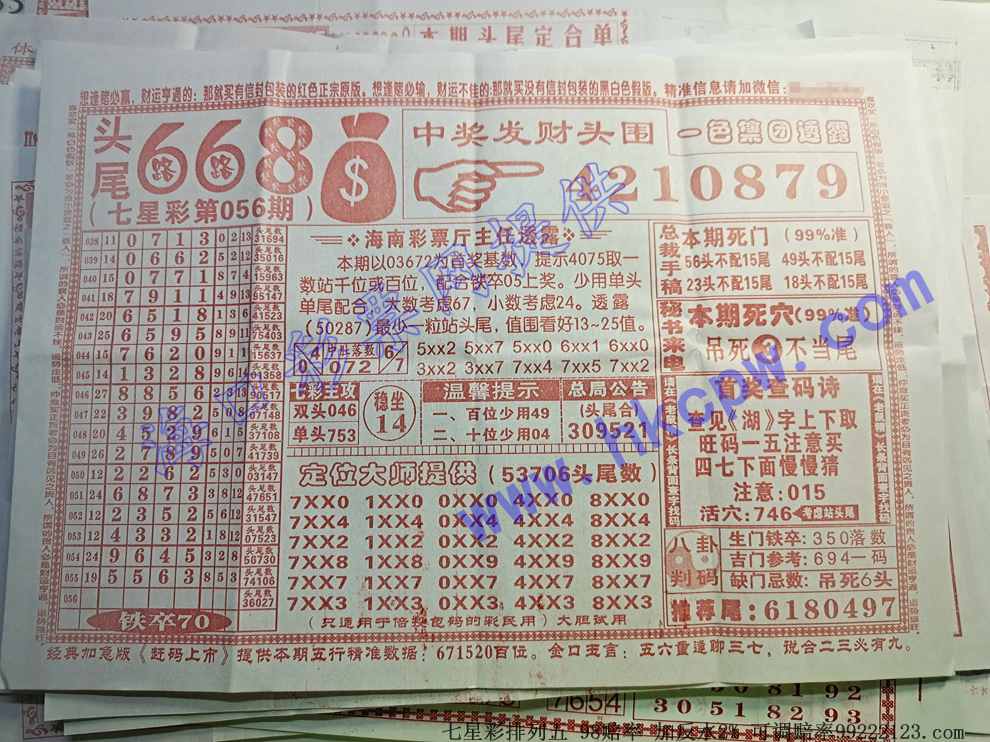 本期头尾定合单
想逢赌必赢,财运亨通的:那就买有信封包装的红色正宗原版。想逢赌必输,财运不佳的:那就买没有信封包装的黑白色假版。精准信息请加微信:
头尾 668
路 路
$
(七星彩第056期)
中奖发财头围
一色集团透露
210879
038 11 0 7 1 3 0 2 13 头尾数 31694
039 14 0 6 6 2 头尾数 35016
040 15 0 7 7 1 8 7 4 头尾数 15963
041 18 7 9 1 1 4 9 13 头尾数 95147
042 20 6 5 1 8 1 3 6 头尾数 41523
043 25 6 5 9 5 8 9 11 头尾数 15403
044 15 7 6 2 0 9 1 1 头尾数 15637
045 14 1 3 2 8 9 6 14 头尾数 01358
046 27 8 8 5 6 头尾数 90517
047 22 3 9 8 2 头尾数 67148
048 20 4 5 2 9 6 1 5 头尾数 37108
049 26 2 7 8 9 5 7 0 头尾数 41739
050 12 2 2 6 2 5 3 0 头尾数 03147
051 24 6 8 7 3 3 8 12 头尾数 47651
052 12 2 3 5 2 5 6 11 头尾数 31547
053 12 4 3 3 2 1 8 12 头尾数 07523
054 24 9 6 4 5 3 2 8 头尾数 56730
055 19 5 5 6 3 8 5 3 头尾数 74106
056 头尾数 36027
铁卒70
海南彩票厅主任透露
本期以03672为首奖基数,提示4075取一
数站千位或百位,配合铁卒05上奖。少用单头
单尾配合,大数考虑67,小数考虑24。透露
(50287)最少一粒站头尾,值围看好13~25值。
4 中肚落数 6
0 072 7
5xx2 5xx7 5xx0 6xx1 6xx0
3xx2 3xx7 7xx4 7xx5 7xx2
七彩主攻
双头046
单头753
稳坐
14
温馨提示
一、百位少用49
二、十位少用04
总局公告
(头尾合)
309521
定位大师提供(53706头尾数)
7XX0 1XX0 0XX0 4XX0 8XX0
7XX4 1XX4 0XX4 4XX4 8XX4
7XX2 1XX2 0XX2 4XX2 8XX2
7XX9 1XX9 0XX9 4XX9 8XX9
7XX7 1XX7 0XX7 4XX7 8XX7
7XX3 1XX3 0XX3 4XX3 8XX3
(只适用于倍投包码的彩民用)大胆试用
总裁手稿
本期死门(99%准)
56头不配15尾 49头不配15尾
23头不配15尾 18头不配15尾
秘书来电
本期死穴(99%准)
吊死 不当尾
首奖查码诗
查见《湖》字上下取
旺码一五注意买
四七下面慢慢猜
注意:015
活穴:746 考虑站头尾
八卦判码
生门铁卒:350落数
吉门参考:694一码
缺门忌数:吊死6头
推荐尾:6180497
经典加急版《赶码上市》提供本期五行精准数据:671520百位。金口玉言:五六重逢聊三七,说合二三必有九。
7654
30518192
30518293
海口彩票网提供
www.hkcpw.com
七星彩排列五 98赔率 加反水2% 可调赔率99222123.com